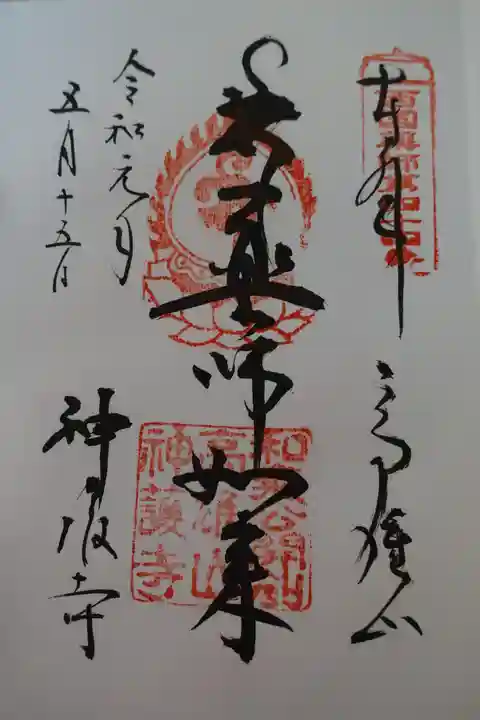 奉拝
高雄山
薬師如来
令和元年
五月十五日
神護寺
高雄山
神護寺